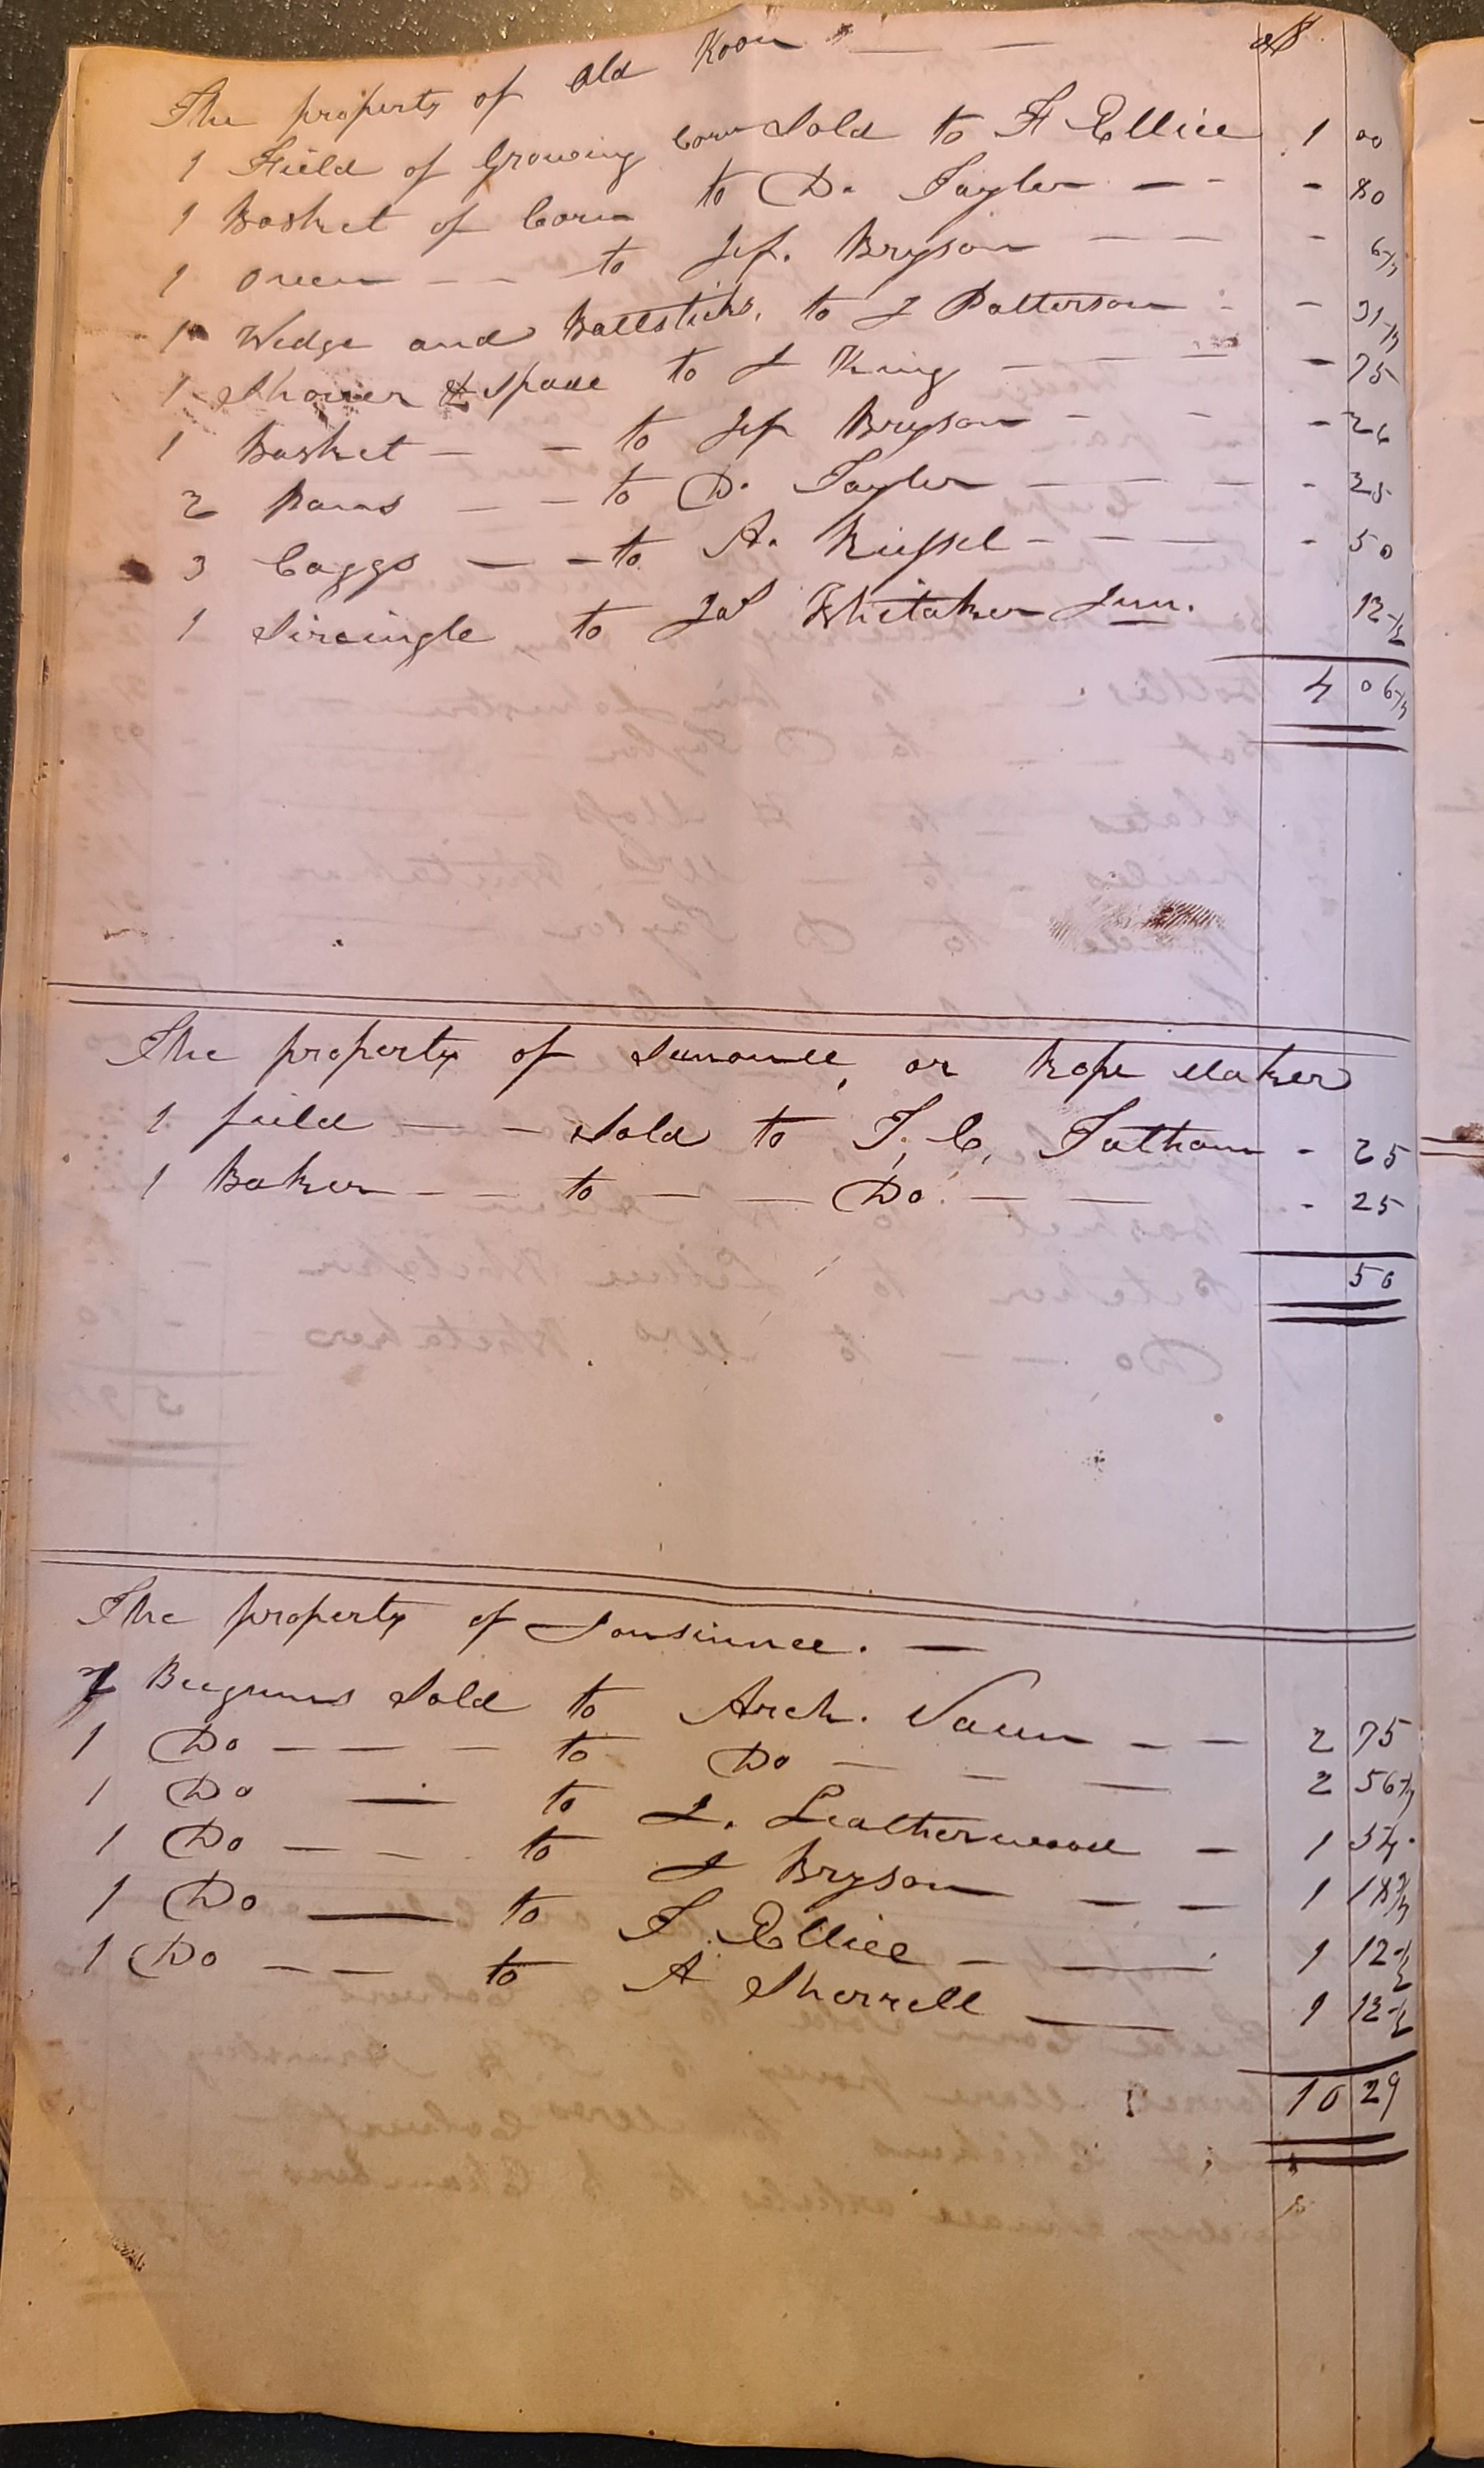 The property of Old Koon — — $
1 Field of Growing Corn Sold to F Ellice 1 00
1 Basket of Corn to D. Tayler — - - 80
1 Oven - - to Jef. Bryson — — - 6¼
1 Wedge and Battsticks, to J Patterson - - 31¼
1 Shover & Spade to J King - — — - 75
1 Basket — - to Jef Bryson - - - 26
2 Pams — - to D. Tayler — — - - 25
3 Caggs — - to A. Russel - - — - 50
1 Sircingle to Jas Whitaker Junr. 12½
4 06¼
The property of Sunouee, or Rope Maker
1 field — - Sold to T, C, Tatham - 25
1 Baker - - to — — Do. — — - 25
50
The property of Jonsinnee. —
Beegums Sold to Arch. Vaun - - 2 75
1 Do — — - to Do — - — 2 56¼
1 Do — to J. Leatherwood - 1 54
1 Do — - to J Bryson — — 1 18¾
1 Do — to F. Ellice - — 1 12½
1 Do — — to A Sherrell — 1 12½
10 29